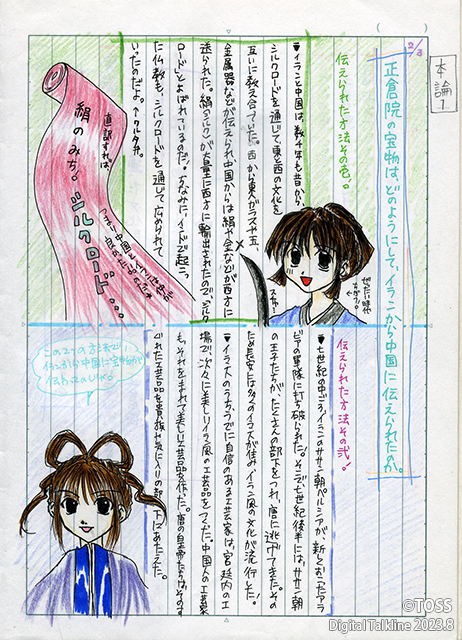 2/3
本論1
正倉院の宝物は、どのようにして、イランから中国に伝えられたか。
伝えられた方法その壱。
▼イランと中国は、数千年も昔から、
シルクロードを通じて、東と西の文化を
互いに教え合っていた。西から東へガラスや玉、
金属器などが伝えられ中国からは絹や金などが西方に
送られた。絹(シルク)が大量に西方に輸出されたので、「シルク
ロード」とよばれているのだ。ちなみに、インドで起こっ
た仏教も、シルクロードを通じて、広められて
いったのだよ。
直訳すれば、
絹のみち。
シルクロード…。
伝えられた方法その弐!
▼七世紀の中ごろ、イランのササン朝ペルシアが、新しくおこったアラ
ビアの軍隊に打ち破られた。そこで七世紀後半には、ササン朝
の王子たちが、たくさんの部下をつれ、唐に逃げてきた。その
ため長安には多くのイラン人が住み、イラン風の文化が流行した!
▼イラン人のうち、うでに自信のある工芸家は、宮廷内の工
場で、次々に美しいイラン風の工芸品をつくった。中国人の工芸家
も、それをまねて美しい工芸品を作った。唐の皇帝たちは、その
すぐれた工芸品を貴族や気に入りの部下にあたえた。
この2つの方法で、
イランから中国に宝物が
伝わったのじゃ。
©TOSS
Digital Talkline 2023.8